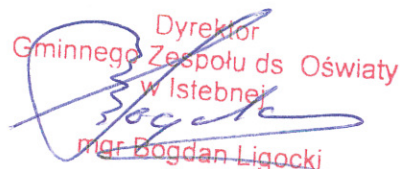 Dyrektor
Gminnego Zespołu ds Oświaty
w Istebnej
mgr Bogdan Ligocki